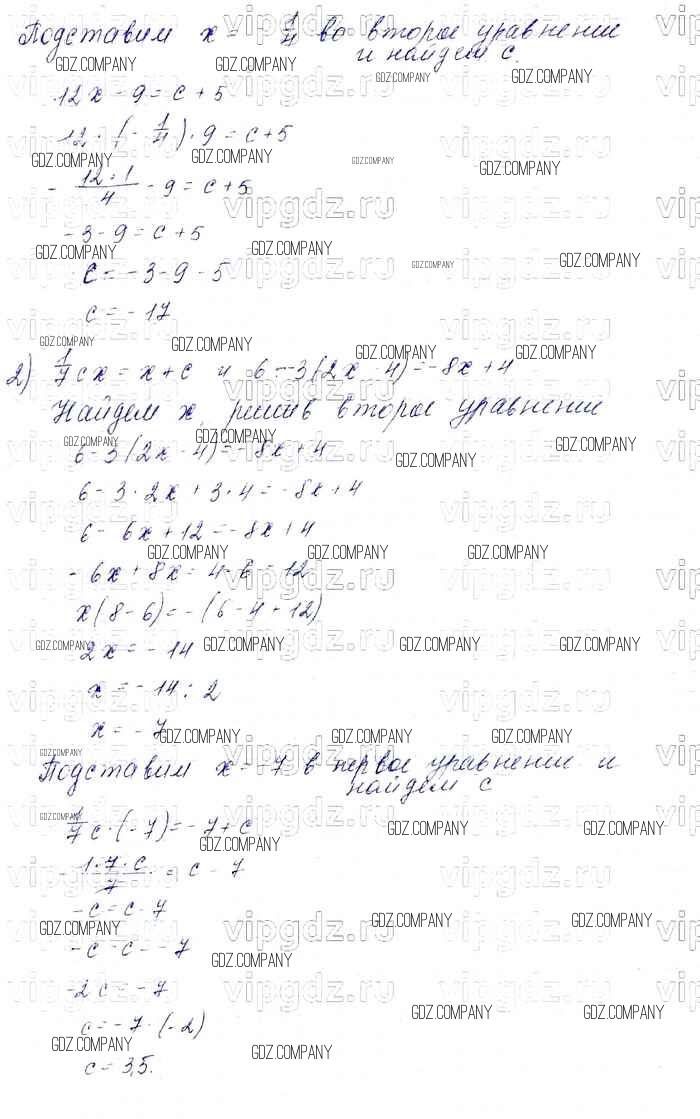 Подставим x = -1/4 во второе уравнение
и найдем c.
12x - 9 = c + 5
12 · (-1/4) · 9 = c + 5
- 12·1/4 - 9 = c + 5
-3 - 9 = c + 5
c = -3 - 9 - 5
c = -17
2) 1/7 cx = x + c и 6 - 3(2x - 4) = -8x + 4
Найдем x, решив второе уравнение
6 - 3(2x - 4) = -8x + 4
6 - 3·2x + 3·4 = -8x + 4
6 - 6x + 12 = -8x + 4
-6x + 8x = 4 - 6 - 12
x(8 - 6) = -(6 - 4 + 12)
2x = -14
x = -14 : 2
x = -7
Подставим x = -7 в первое уравнение и
найдем c
1/7 c · (-7) = -7 + c
- 1·7·c/7 = c - 7
-c = c - 7
-c - c = -7
-2c = -7
c = -7 · (-2)
c = 3,5.
GDZ.COMPANY
vipgdz.ru